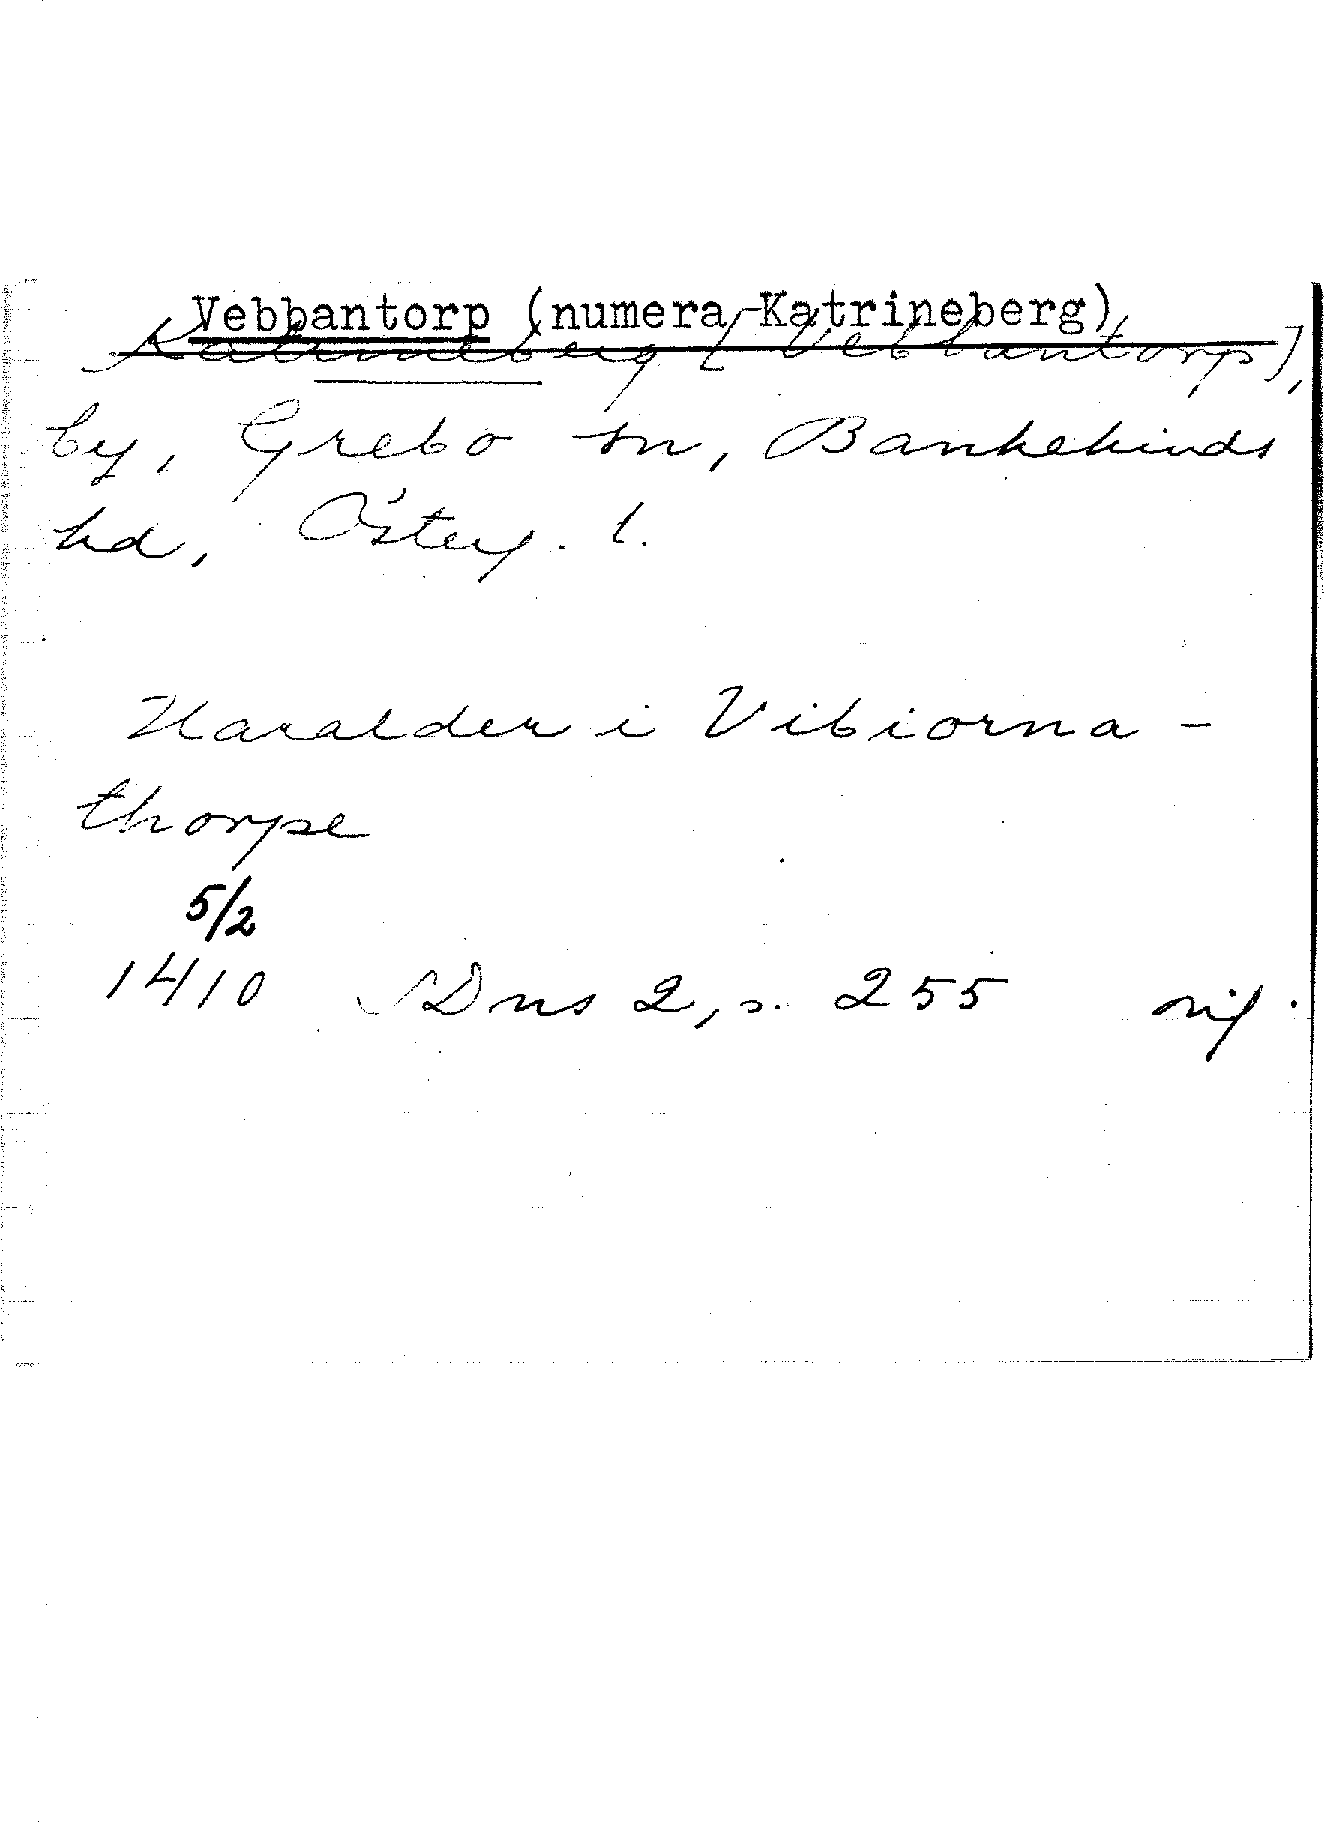 Vebbantorp (numera Katrineberg),
Katrineberg [Vebbantorp],
by, Grebo sn, Bankekinds
hd, Österg. l.
Haralder i Vibiorna-
thorpe
5/2
1410 SDns 2, s. 255 orig.